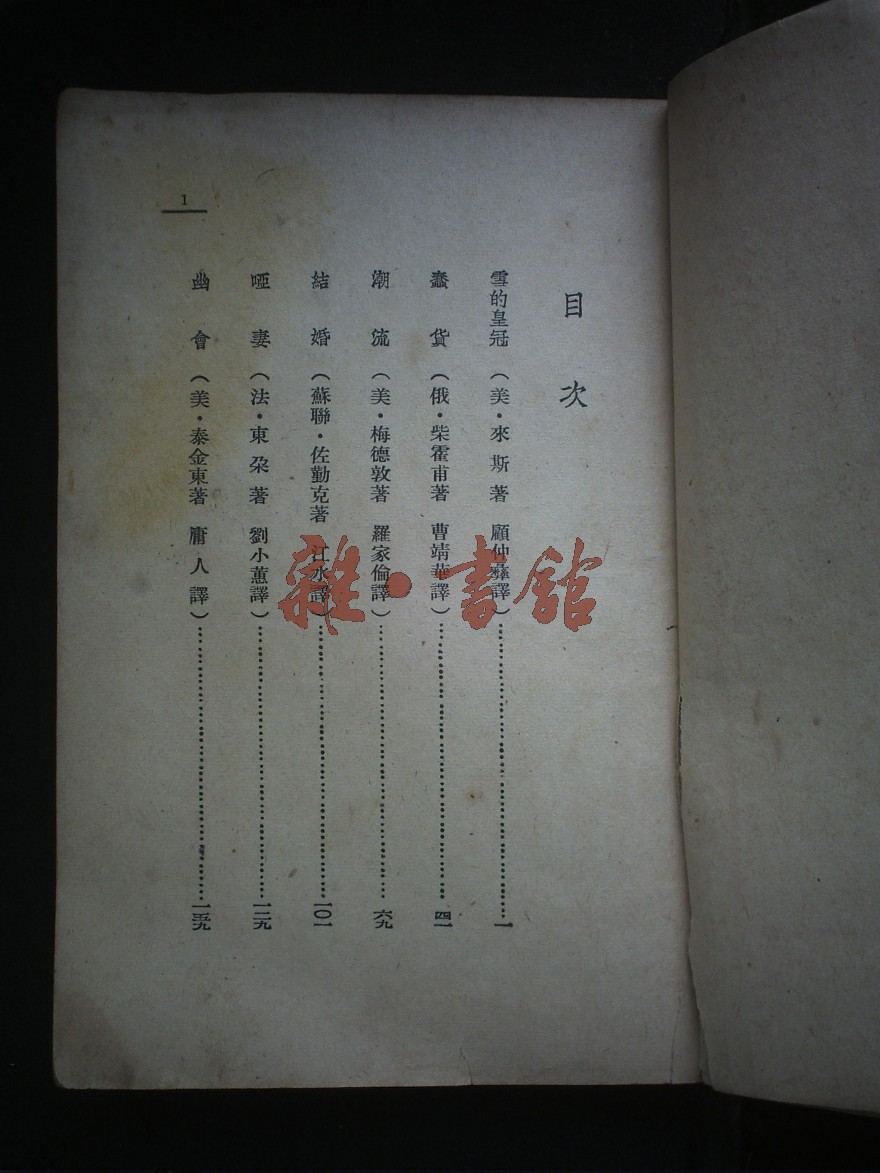 1
目次
雪的皇冠（美・來斯著 顧仲彝譯）……一
蠢貨（俄・柴霍甫著 曹靖華譯）……四一
潮流（美・梅德敦著 羅家倫譯）……六九
結婚（蘇聯・佐勤克著 江水譯）……一〇一
啞妻（法・東朶著 劉小蕙譯）……一二九
幽會（美・泰金東著 庸人譯）……一五九
雜・書館